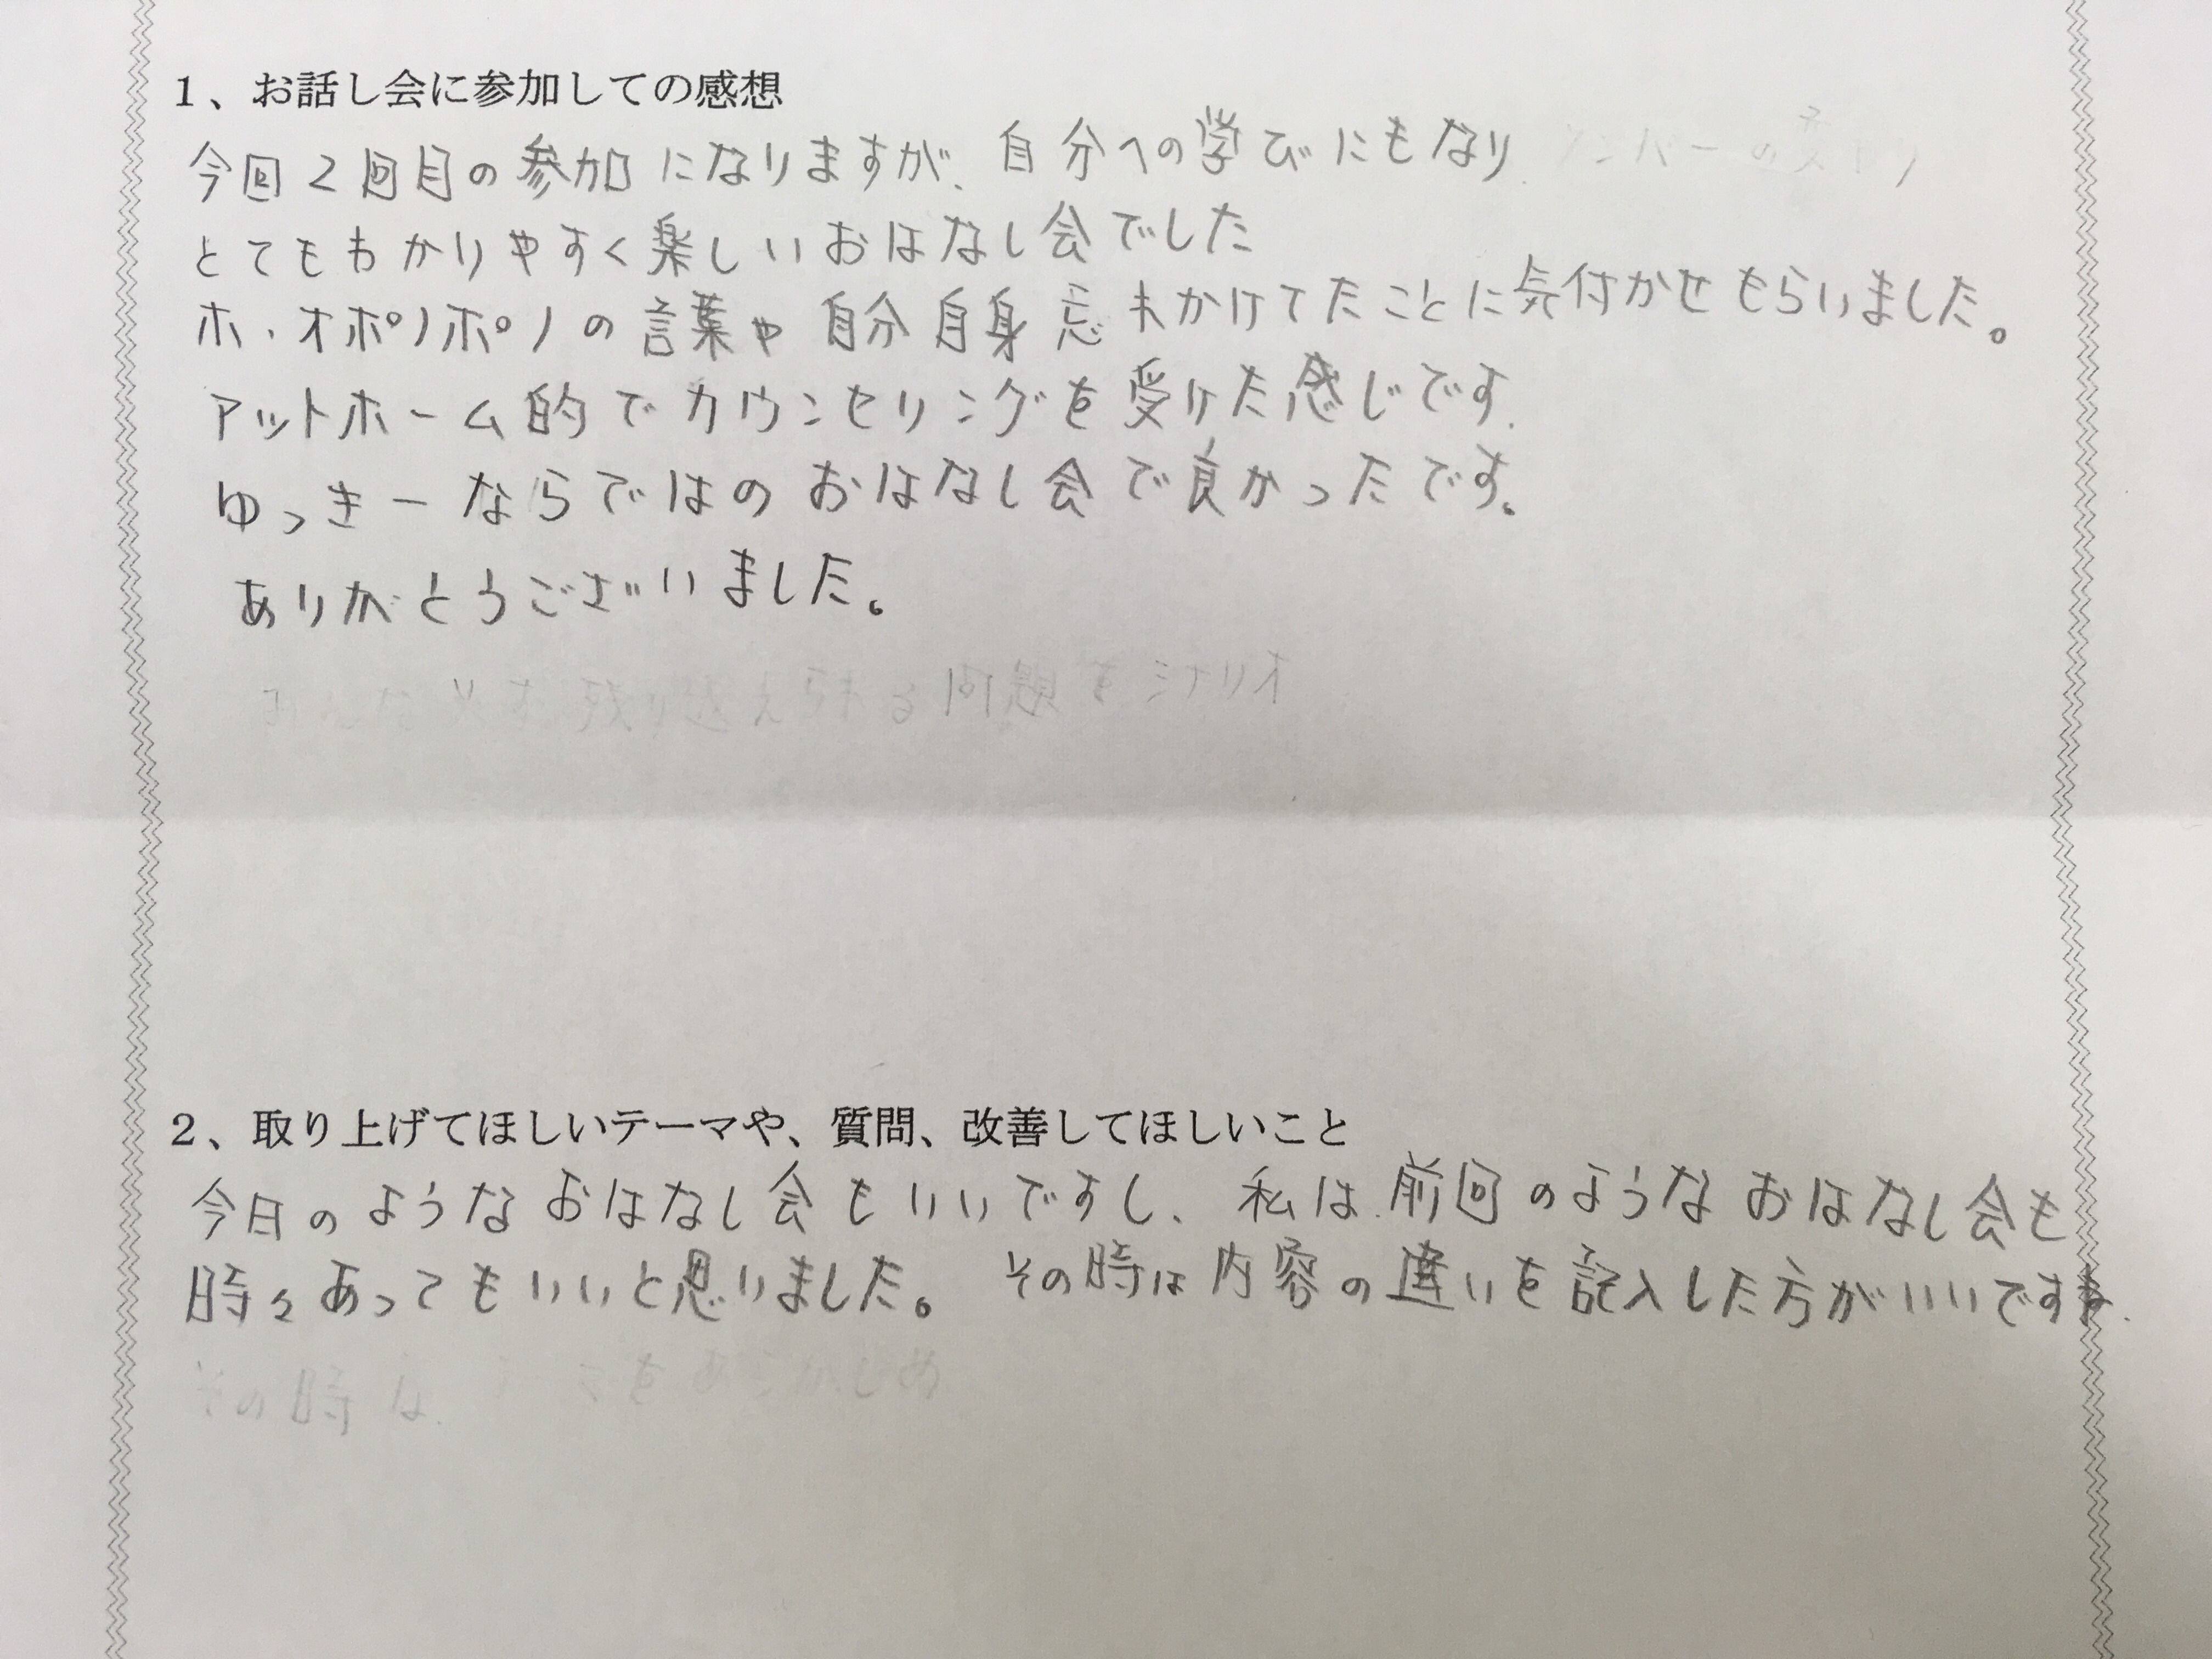 １、お話し会に参加しての感想
今回２回目の参加になりますが、自分への学びにもなり
とてもわかりやすく楽しいおはなし会でした
ホ・オポノポノの言葉や自分自身忘れかけてたことに気付かせもらいました。
アットホーム的でカウンセリングを受けた感じです.
ゆっきーならではのおはなし会で良かったです。
ありがとうございました。
り越えられる問題 シナリオ
２、取り上げてほしいテーマや、質問、改善してほしいこと
今日のようなおはなし会もいいですし、私は.前回のようなおはなし会も
時々あってもいいと思いました。 その時は内容の違いを記入した方がいいです
その時は. をあらかじめ